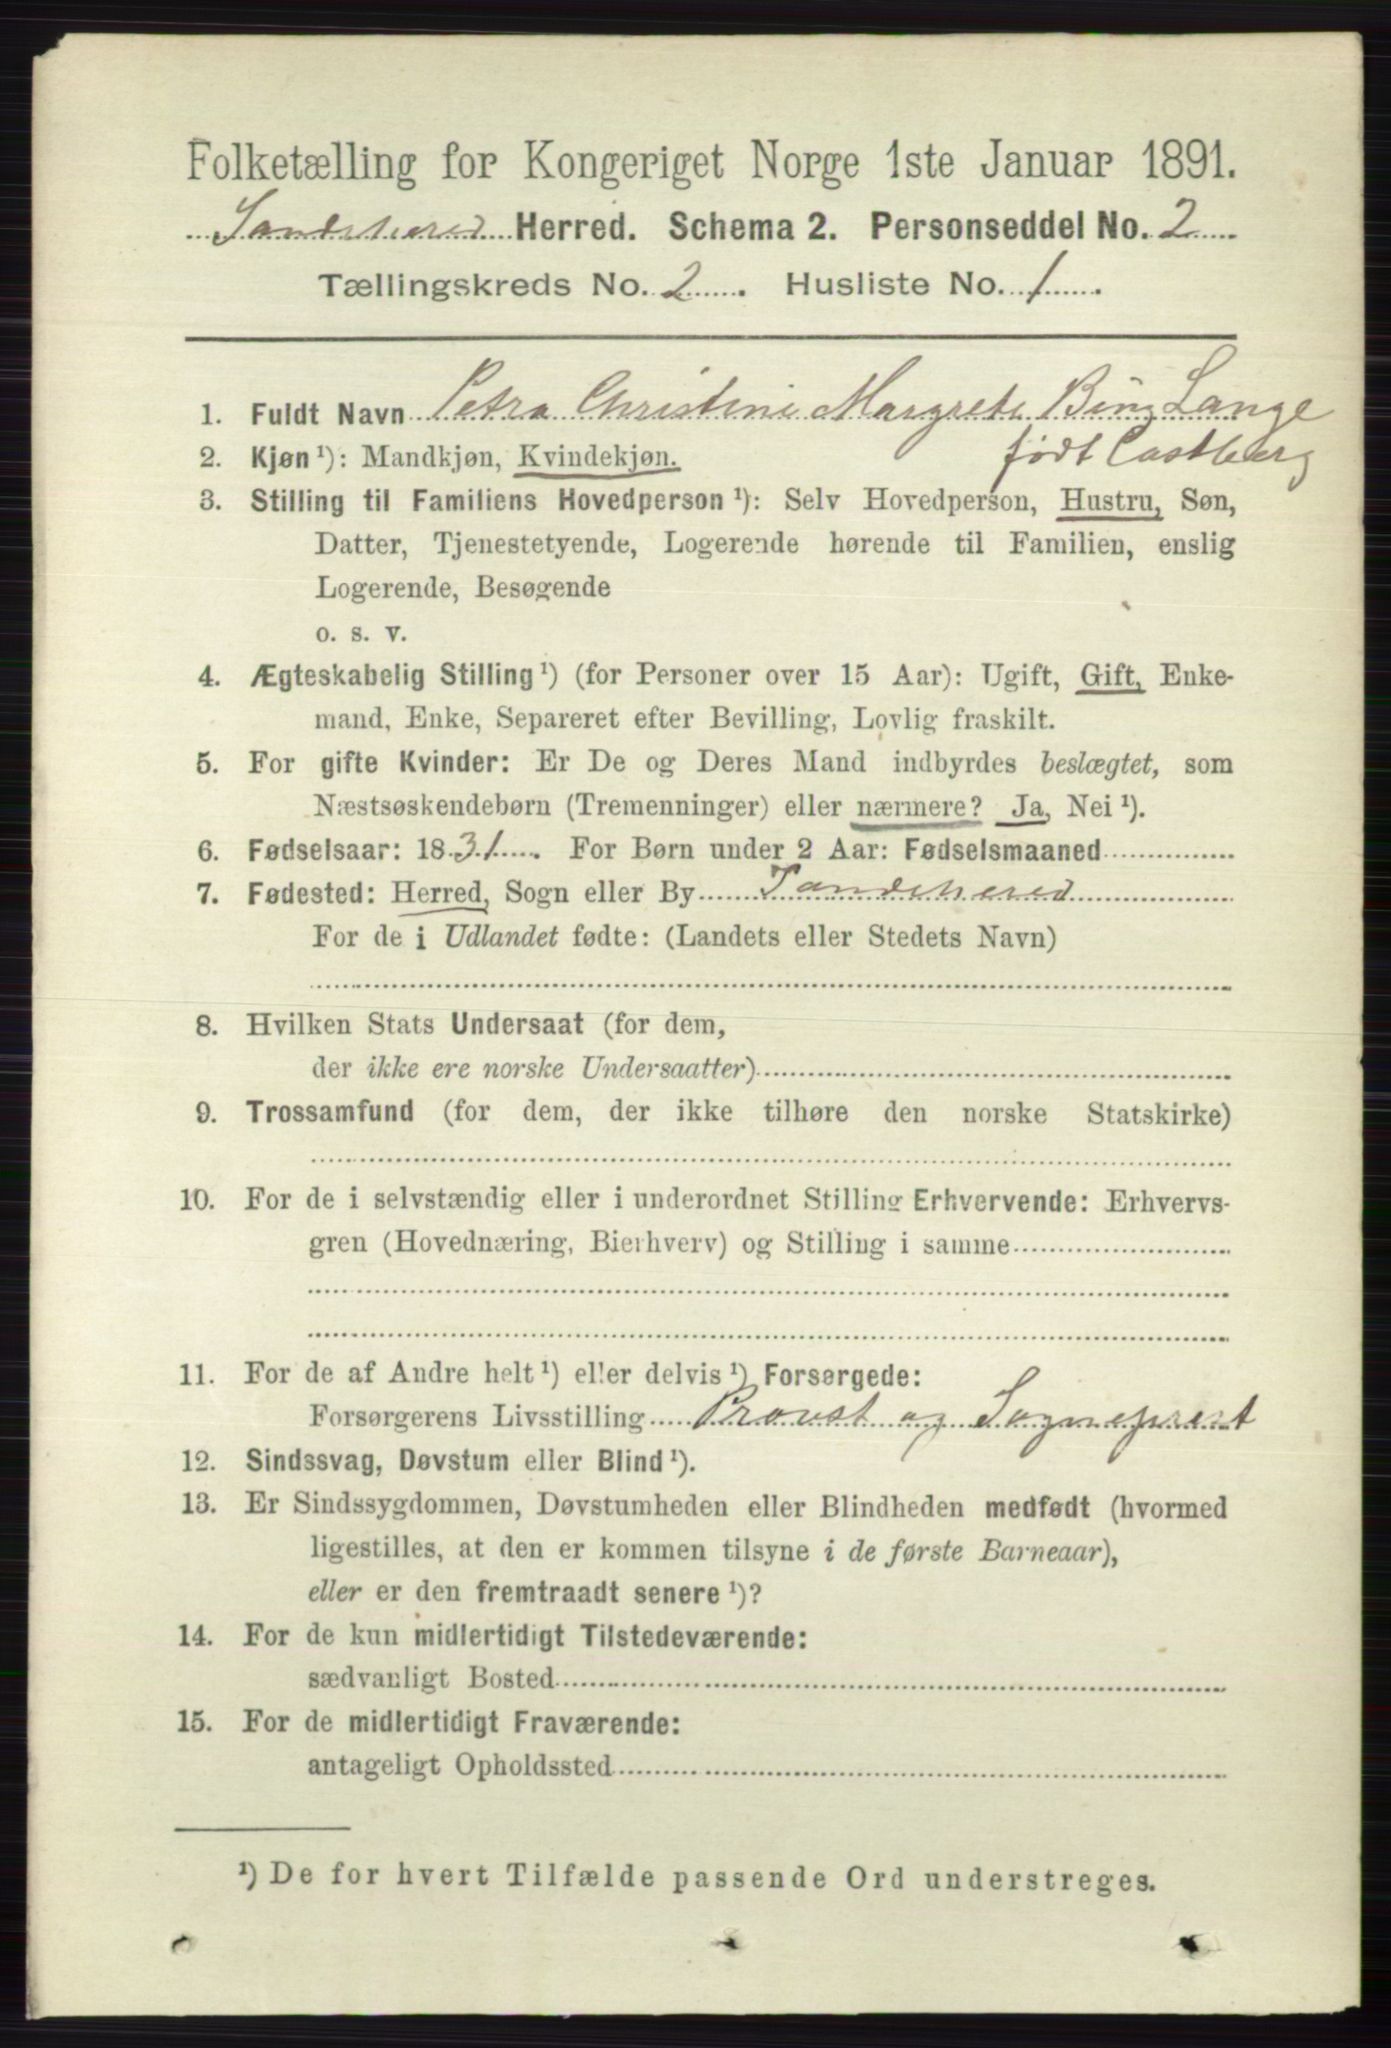 Folketælling for Kongeriget Norge 1ste Januar 1891.
Sandehered Herred. Schema 2. Personseddel No. 2
Tællingskreds No. 2. Husliste No. 1.
1. Fuldt Navn Petra Christine Margrete Bing Lange
født Castberg
2. Kjøn ¹): Mandkjøn, Kvindekjøn.
3. Stilling til Familiens Hovedperson ¹): Selv Hovedperson, Hustru, Søn,
Datter, Tjenestetyende, Logerende hørende til Familien, enslig
Logerende, Besøgende
o. s. v.
4. Ægteskabelig Stilling ¹) (for Personer over 15 Aar): Ugift, Gift, Enke-
mand, Enke, Separeret efter Bevilling, Lovlig fraskilt.
5. For gifte Kvinder: Er De og Deres Mand indbyrdes beslægtet, som
Næstsøskendebørn (Tremenninger) eller nærmere? Ja, Nei ¹).
6. Fødselsaar: 1831. For Børn under 2 Aar: Fødselsmaaned
7. Fødested: Herred, Sogn eller By Sandehered
For de i Udlandet fødte: (Landets eller Stedets Navn)
8. Hvilken Stats Undersaat (for dem,
der ikke ere norske Undersaatter)
9. Trossamfund (for dem, der ikke tilhøre den norske Statskirke)
10. For de i selvstændig eller i underordnet Stilling Erhvervende: Erhvervs-
gren (Hovednæring, Bierhverv) og Stilling i samme
11. For de af Andre helt ¹) eller delvis ¹) Forsørgede:
Forsørgerens Livsstilling Provst og Sogneprest
12. Sindssvag, Døvstum eller Blind ¹).
13. Er Sindssygdommen, Døvstumheden eller Blindheden medfødt (hvormed
ligestilles, at den er kommen tilsyne i de første Barneaar),
eller er den fremtraadt senere ¹)?
14. For de kun midlertidigt Tilstedeværende:
sædvanligt Bosted
15. For de midlertidigt Fraværende:
antageligt Opholdssted
¹) De for hvert Tilfælde passende Ord understreges.